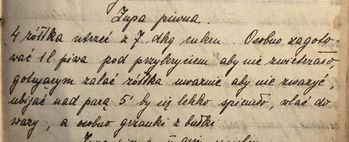 Zupa piwna.
4 żółtka utrzeć z 7 dkg cukru. Osobno zagoto-
wać 1 l. piwa pod przykryciem aby nie zwietrzało,
gotującym zalać żółtka uważnie aby nie zwarzyć,
ubijać nad parą 5' by się lekko spieniło, wlać do
wazy, a osobno grzanki z bułki.
Zupa